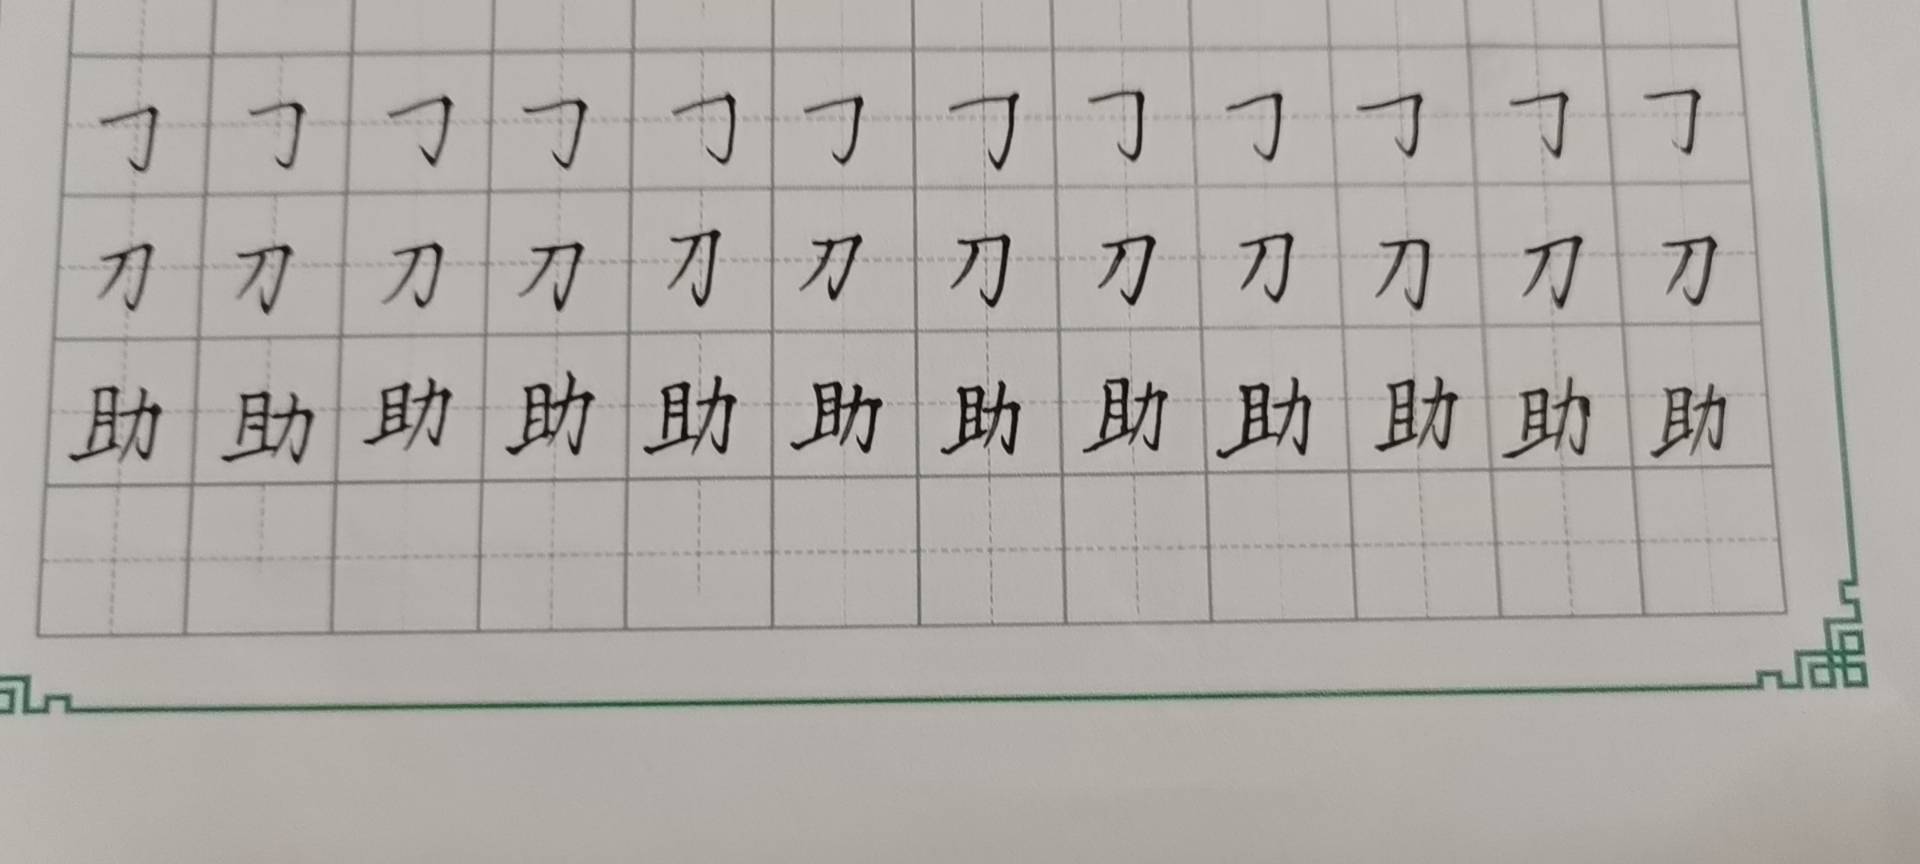 𠃌 𠃌 𠃌 𠃌 𠃌 𠃌 𠃌 𠃌 𠃌 𠃌 𠃌 𠃌
刀 刀 刀 刀 刀 刀 刀 刀 刀 刀 刀 刀
助 助 助 助 助 助 助 助 助 助 助 助